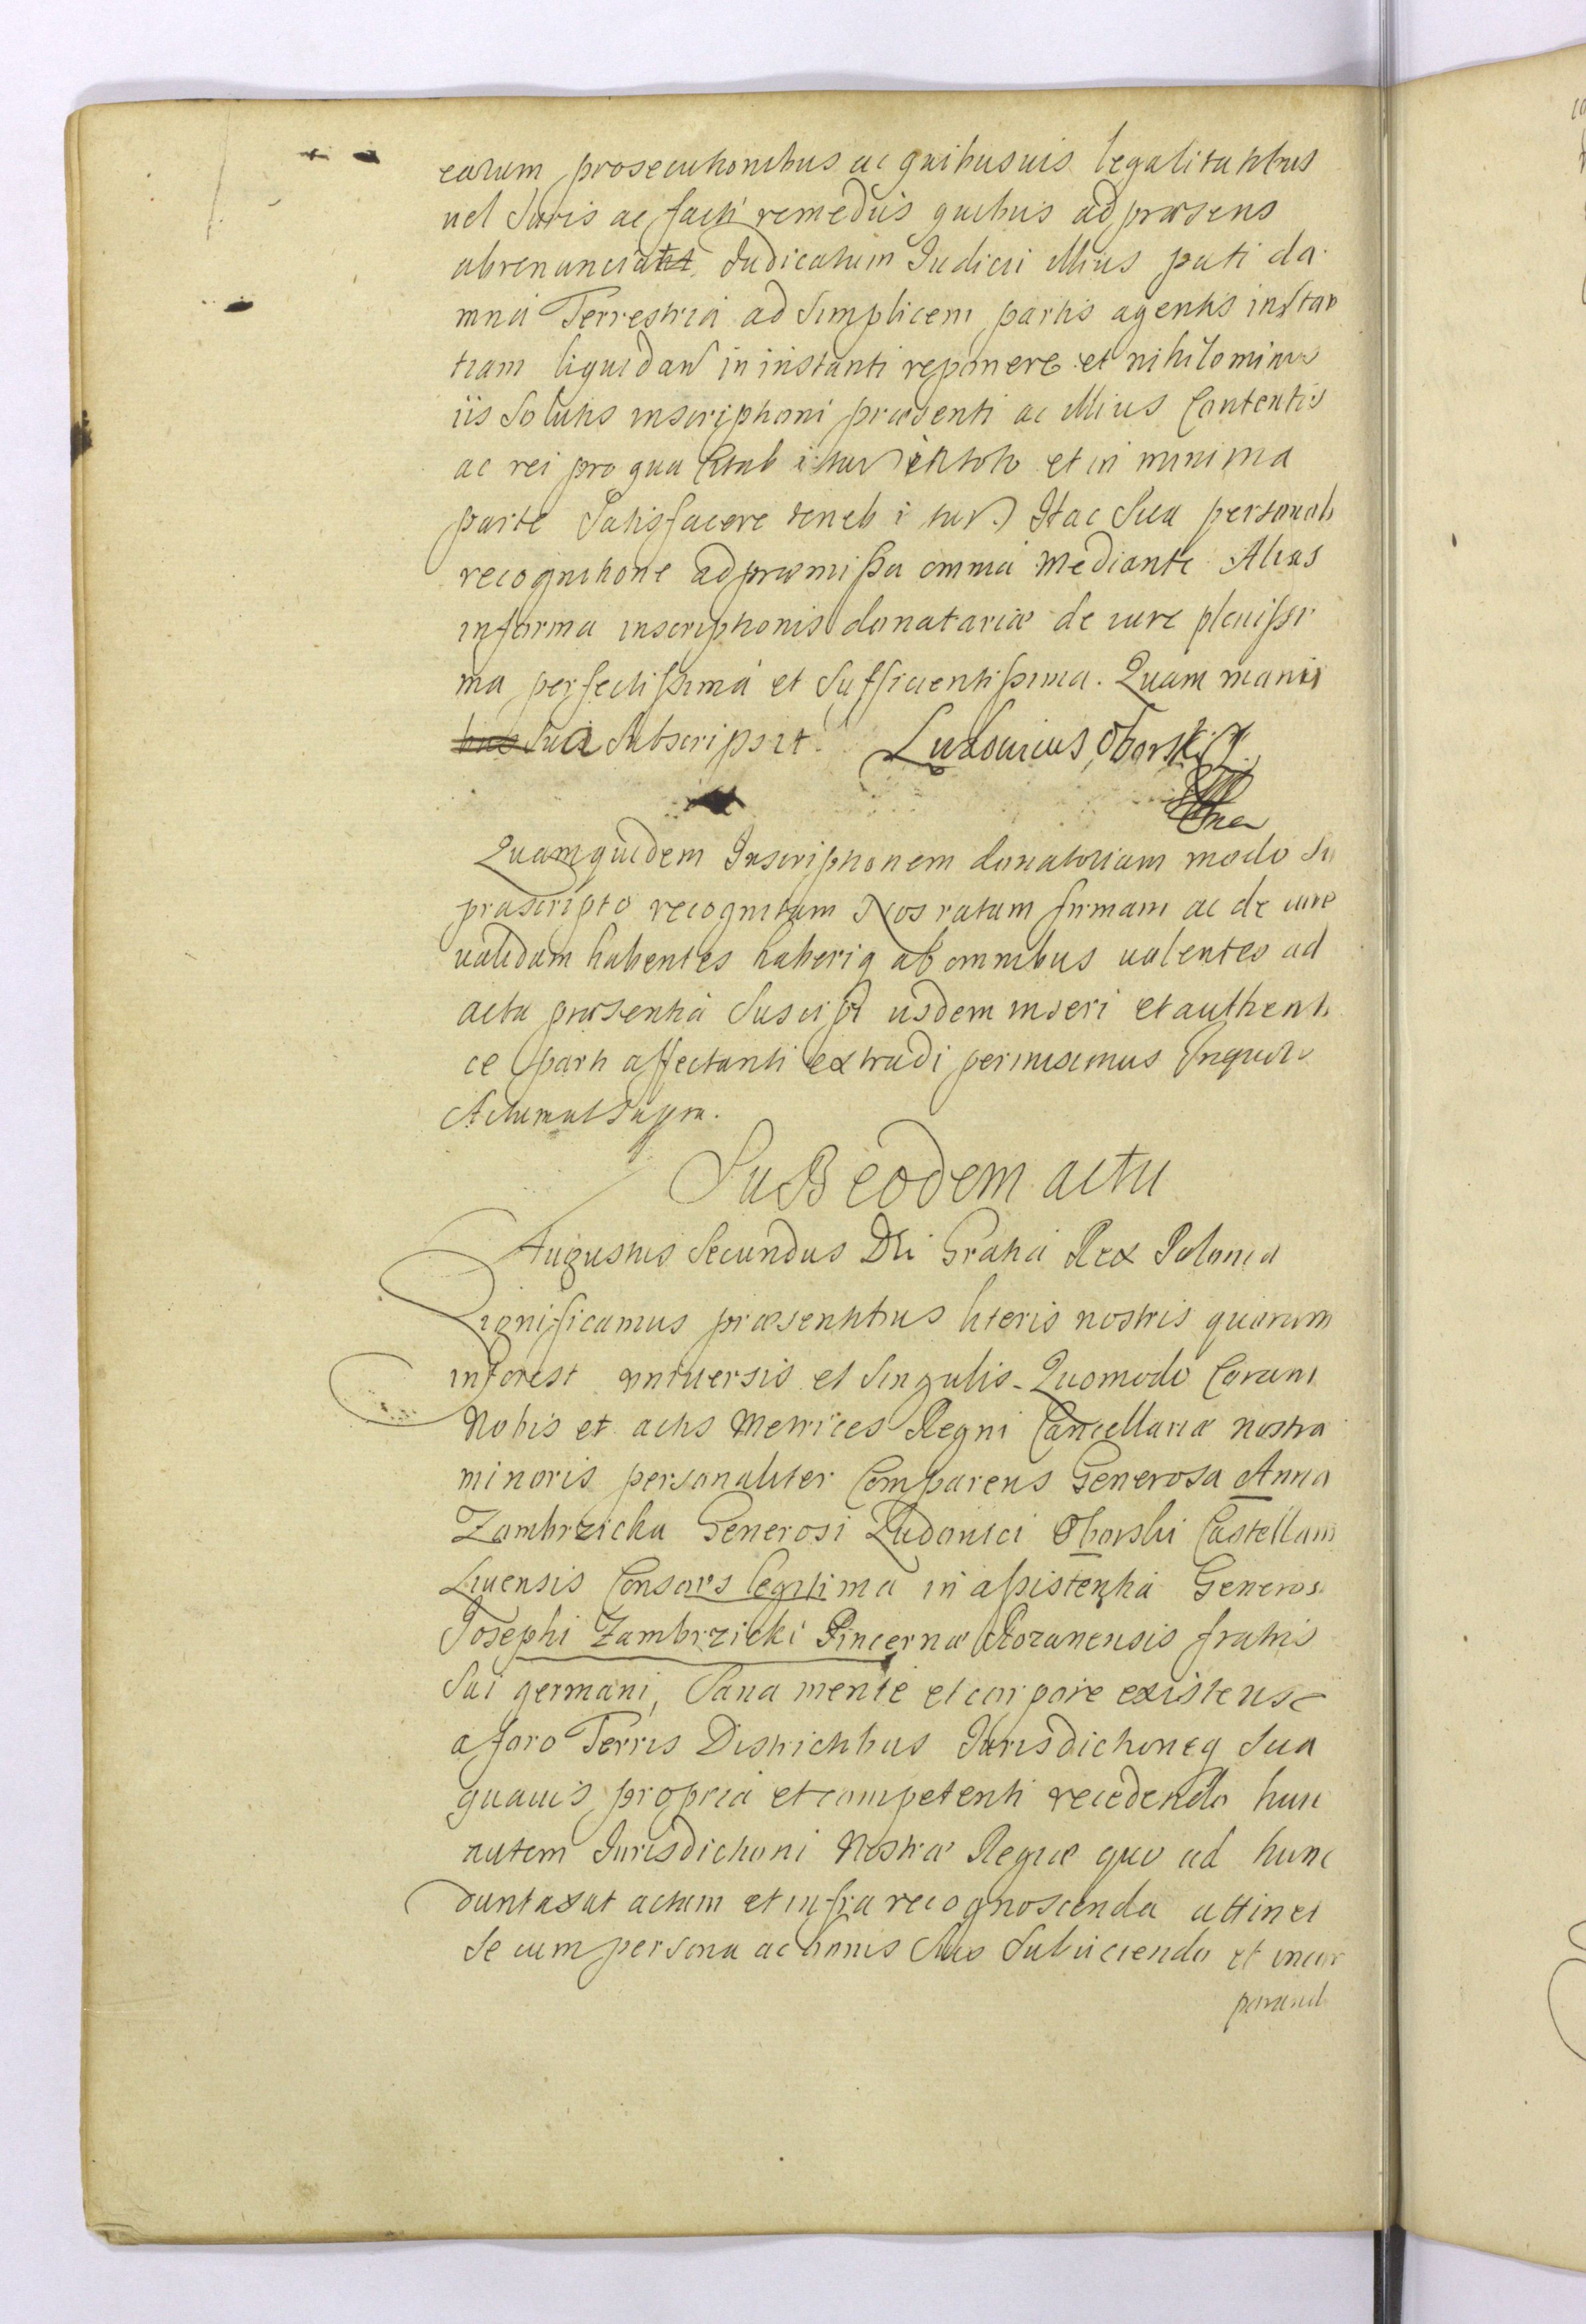 earum prosecutionibus ac quibusuis legalitatibus
uel Juris ac facti remediis quibus ad præsens
abrenunciat Judicatum Judicii illius pati da
mna Terrestria ad simplicem partis agentis instan
tiam liquidan in instanti reponere et nihilominus
iis solutis inscriptioni præsenti ac illius Contentis
ac rei pro qua Citab itur in toto et in minima
parte satisfacere teneb i tur Hac sua personali
recognitione ad præmissa omnia mediante Alias
in forma inscriptionis donatariæ de iure plenissi
ma perfectissima et sufficientissima. Quam manu
sua subscripsit. Ludouicus Oborski
Quamquidem Inscriptionem donatoriam modo su
prascripto recognitam Nos ratam firmam ac de iure
ualidam habentes haberiq ab omnibus uolentes ad
acta præsentia suscipi iisdem inseri et authenti
ce parti affectanti extradi permisimus
Actum ut supra.
Sub eodem actu
Augustus Secundus Dei Gratia Rex Poloniæ
Significamus præsentibus literis nostris quorum
interest uniuersis et singulis. Quomodo Coram
Nobis et actis Metrices Regni Cancellariæ nostra
minoris personaliter Comparens Generosa Anna
Zambrzicka Generosi Ludouici Oborski Castellani
Liuensis Consors legitima in assistentia Generosi
Josephi Zambrzicki Pincernæ Rozanensis fratris
sui germani, Sana mente et corpore existens
a foro Terris Districtibus Jurisdictioneq sua
quauis propria et competenti recedendo huic
autem Jurisdictioni Nostræ Regiæ quo ad hunc
duntaxat actum et infra recognoscenda attinet
se cum persona ac bonis suis subiiciendo et incor
porand